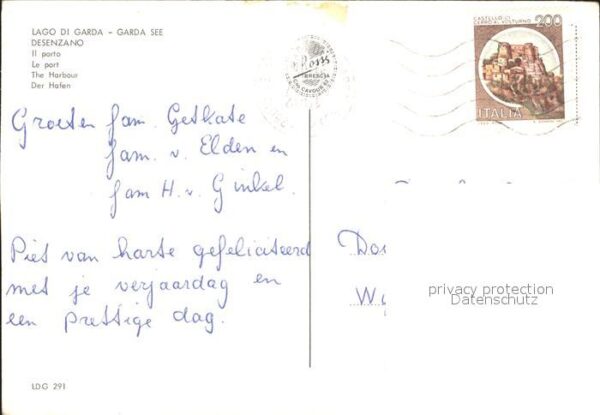 LAGO DI GARDA - GARDA SEE
DESENZANO
Il porto
Le port
The Harbour
Der Hafen
BRESCIA
CASTELLO DI
CERRO AL VOLTURNO
200
ITALIA
Groeten fam. Getkate
fam. v. Elden en
fam H. v. Ginkel.
Piet van harte gefeliciteerd
met je verjaardag en
een prettige dag.
privacy protection
Datenschutz
LDG 291